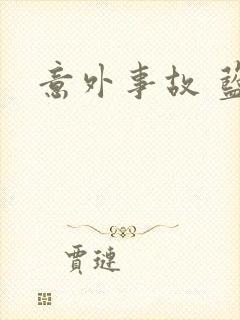 意外事故
賈璉